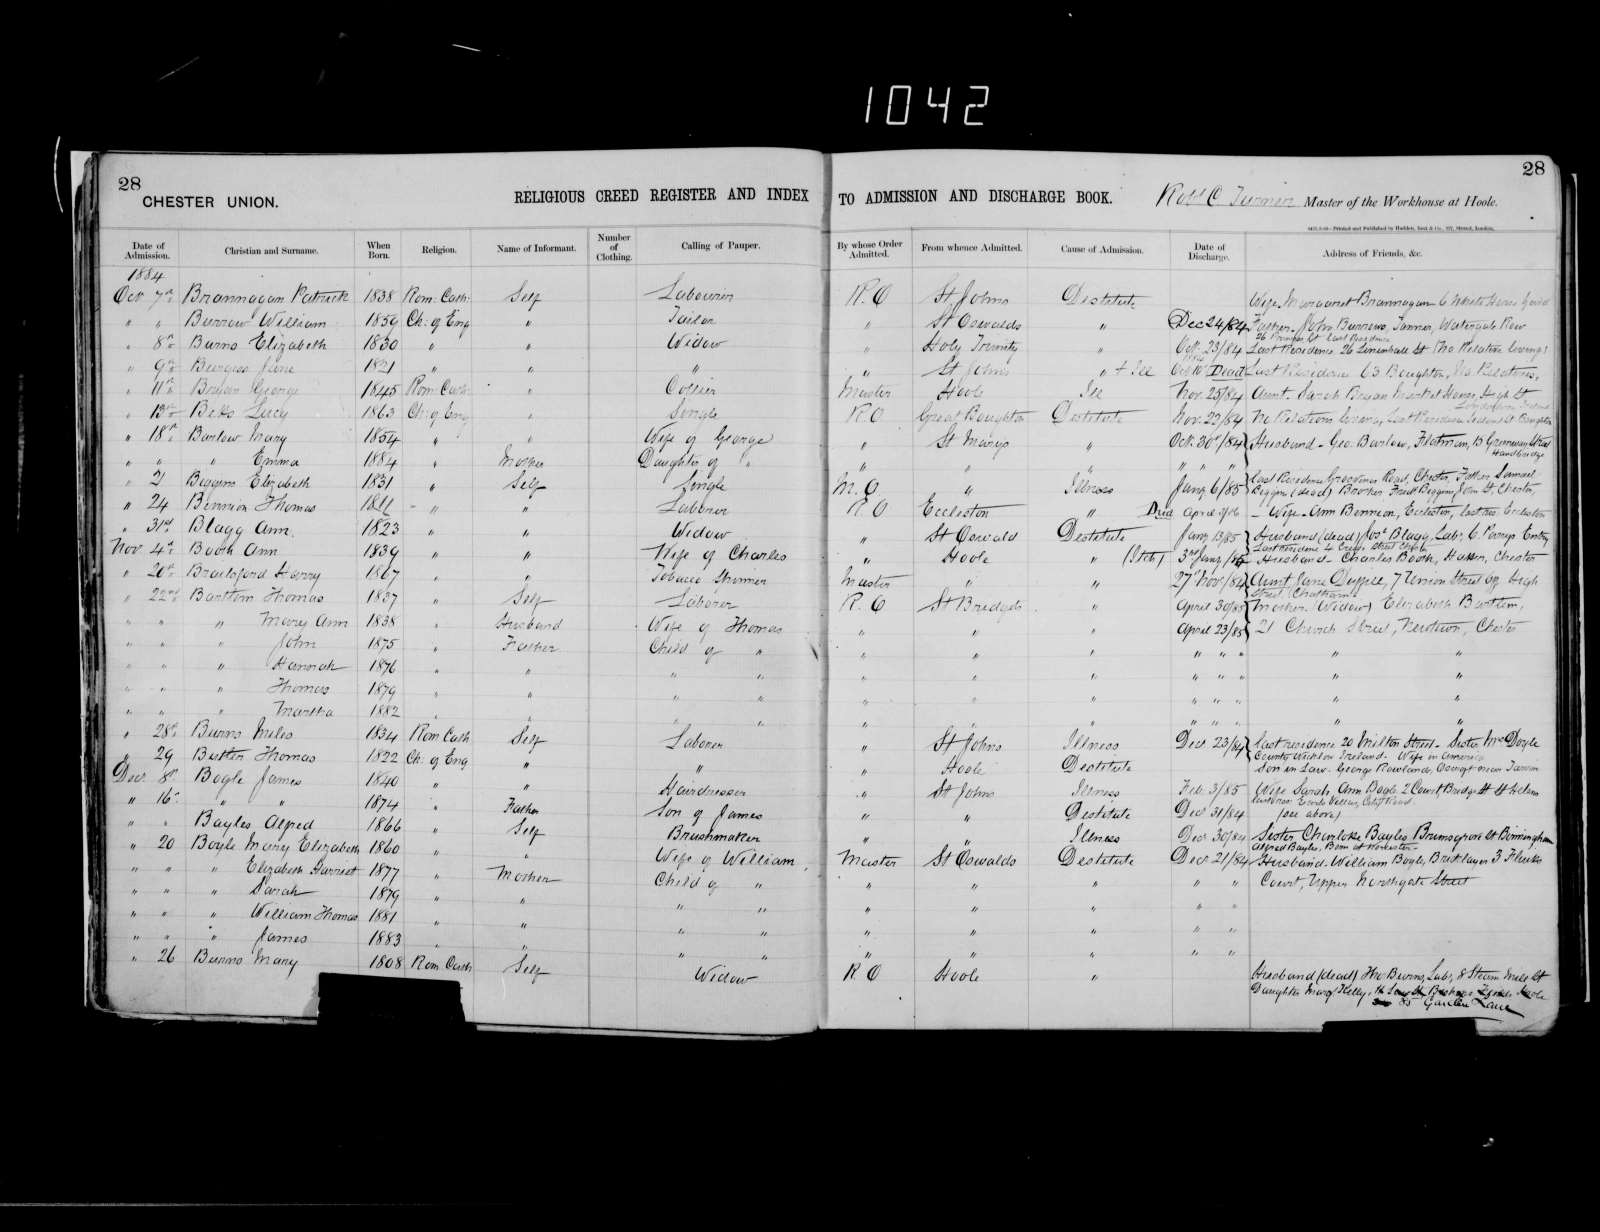 1042
28
28
CHESTER UNION.
RELIGIOUS CREED REGISTER AND INDEX TO ADMISSION AND DISCHARGE BOOK.
Robt C Turner Master of the Workhouse at Hoole.
Date of Admission. Christian and Surname. When Born. Religion. Name of Informant. Number of Clothing. Calling of Pauper. By whose Order Admitted. From whence Admitted. Cause of Admission. Date of Discharge. Address of Friends, &c.
1884
Oct 7th Brannagan Patrick 1838 Rom: Cath: Self Labourer R.O St Johns Destitute Wife Margaret Brannagan 6 White Horse Yard
" " Burrow William 1859 Ch: of Eng " Tailor " St Oswalds " Dec 24/84 Father John Burrows, Tanner, Watergate Row
" 8th Burns Elizabeth 1830 " " Widow " Holy Trinity " Oct 23/84 Last Residence 26 Linenhall St (No Relative living)
" 9th Burgess Jane 1821 " " " " St Johns " + Ill Dead Last Residence 63 Boughton, No Relatives,
" 11th Bryan George 1845 Rom: Cath: " Collier Master Hoole Ill Nov 25/84 Aunt Sarah Bryan Market House, High St
" 13th Betts Lucy 1863 Ch: of Eng " Single R O Great Boughton Destitute Nov. 22/84 No Relations living, Last Residence Boughton
" 18th Barlow Mary 1854 " " Wife of George " St Marys " Oct. 30th/84 Husband - Geo. Barlow, Flatman, 13 Greenway Street Handbridge
" " " Emma 1884 " Mother Daughter of " " " " " " "
" 21 Biggins Elizabeth 1831 " Self Single M.O " Illness Jany 6/85 Last Residence Grosvenor Road, Chester, Father Samuel
Biggins (dead) Brother Fredk Biggins, John St, Chester,
" 24 Bennion Thomas 1811 " " Laborer R O Eccleston " Died April Wife - Ann Bennion, Eccleston, last res. Eccleston
" 31st Blagg Ann. 1823 " " Widow " St Oswald Destitute Jany 13/85 Husband (dead) Jos. Blagg, Labr, 6 Parrys Entry
Nov 4th Booth Ann 1839 " " Wife of Charles " Hoole " (Itch) 3rd Jany/85 Husband - Charles Booth, Hatter, Chester
" 20th Brailsford Harry 1867 " " Tobacco Spinner Master " " 27th Nov/84 Aunt Jane 7 Union Street off High
Street Chatham
" 22nd Bartlem Thomas 1837 " Self Laborer R. O St Bridgets " April 30/85 Mother (Widow) Elizabeth Bartlem,
" " " Mary Ann 1838 " Husband Wife of Thomas " " " April 23/85 21 Church Street, Newtown, Chester
" " " John 1875 " Father Child of " " " " " " " " "
" " " Hannah 1876 " " " " " " " " " " " "
" " " Thomas 1879 " " " " " " " " " " " "
" " " Martha 1882 " " " " " " " " " " " "
" 28th Burns Miles 1834 Rom Cath Self Laborer " St Johns Illness Dec 23/84 Last residence 20 Milton Street - Sister Mrs Doyle
County Wicklow Ireland - Wife in America
" 29 Butler Thomas 1822 Ch: of Eng " " " Hoole Destitute Son in Law - George Rowlands,
Dec 8th Bogle James 1840 " " Hairdresser " St Johns Illness Feb. 3/85 Wife Sarah Ann Bogle 2 Court Bridge St St Helens
" 16th " " 1874 " Father Son of James " " Destitute Dec 31/84 (see above)
" " Bayles Alfred 1866 " Self Brushmaker " " Illness Dec 30/84 Sister Charlotte Bayles Bromsgrove St Birmingham
Alfred Bayles, Born at Worcester -
" 20 Boyle Mary Elizabeth 1860 " " Wife of William Master St Oswalds Destitute Dec 21/84 Husband - William Boyle, Bricklayer 3
" " " Elizabeth Harriet 1877 " Mother Child of " " " " " " Court, Upper Northgate Street
" " " Sarah 1879 " " " " " " " " "
" " " William Thomas 1881 " " " " " " " " "
" " " James 1883 " " " " " " " " "
" 26 Burns Mary 1808 Rom Cath Self Widow R. O Hoole " Husband (dead) Thos Burns, Labr, 8 Steam Mill St
Daughter Mary Kelly,
85 Garden Lane